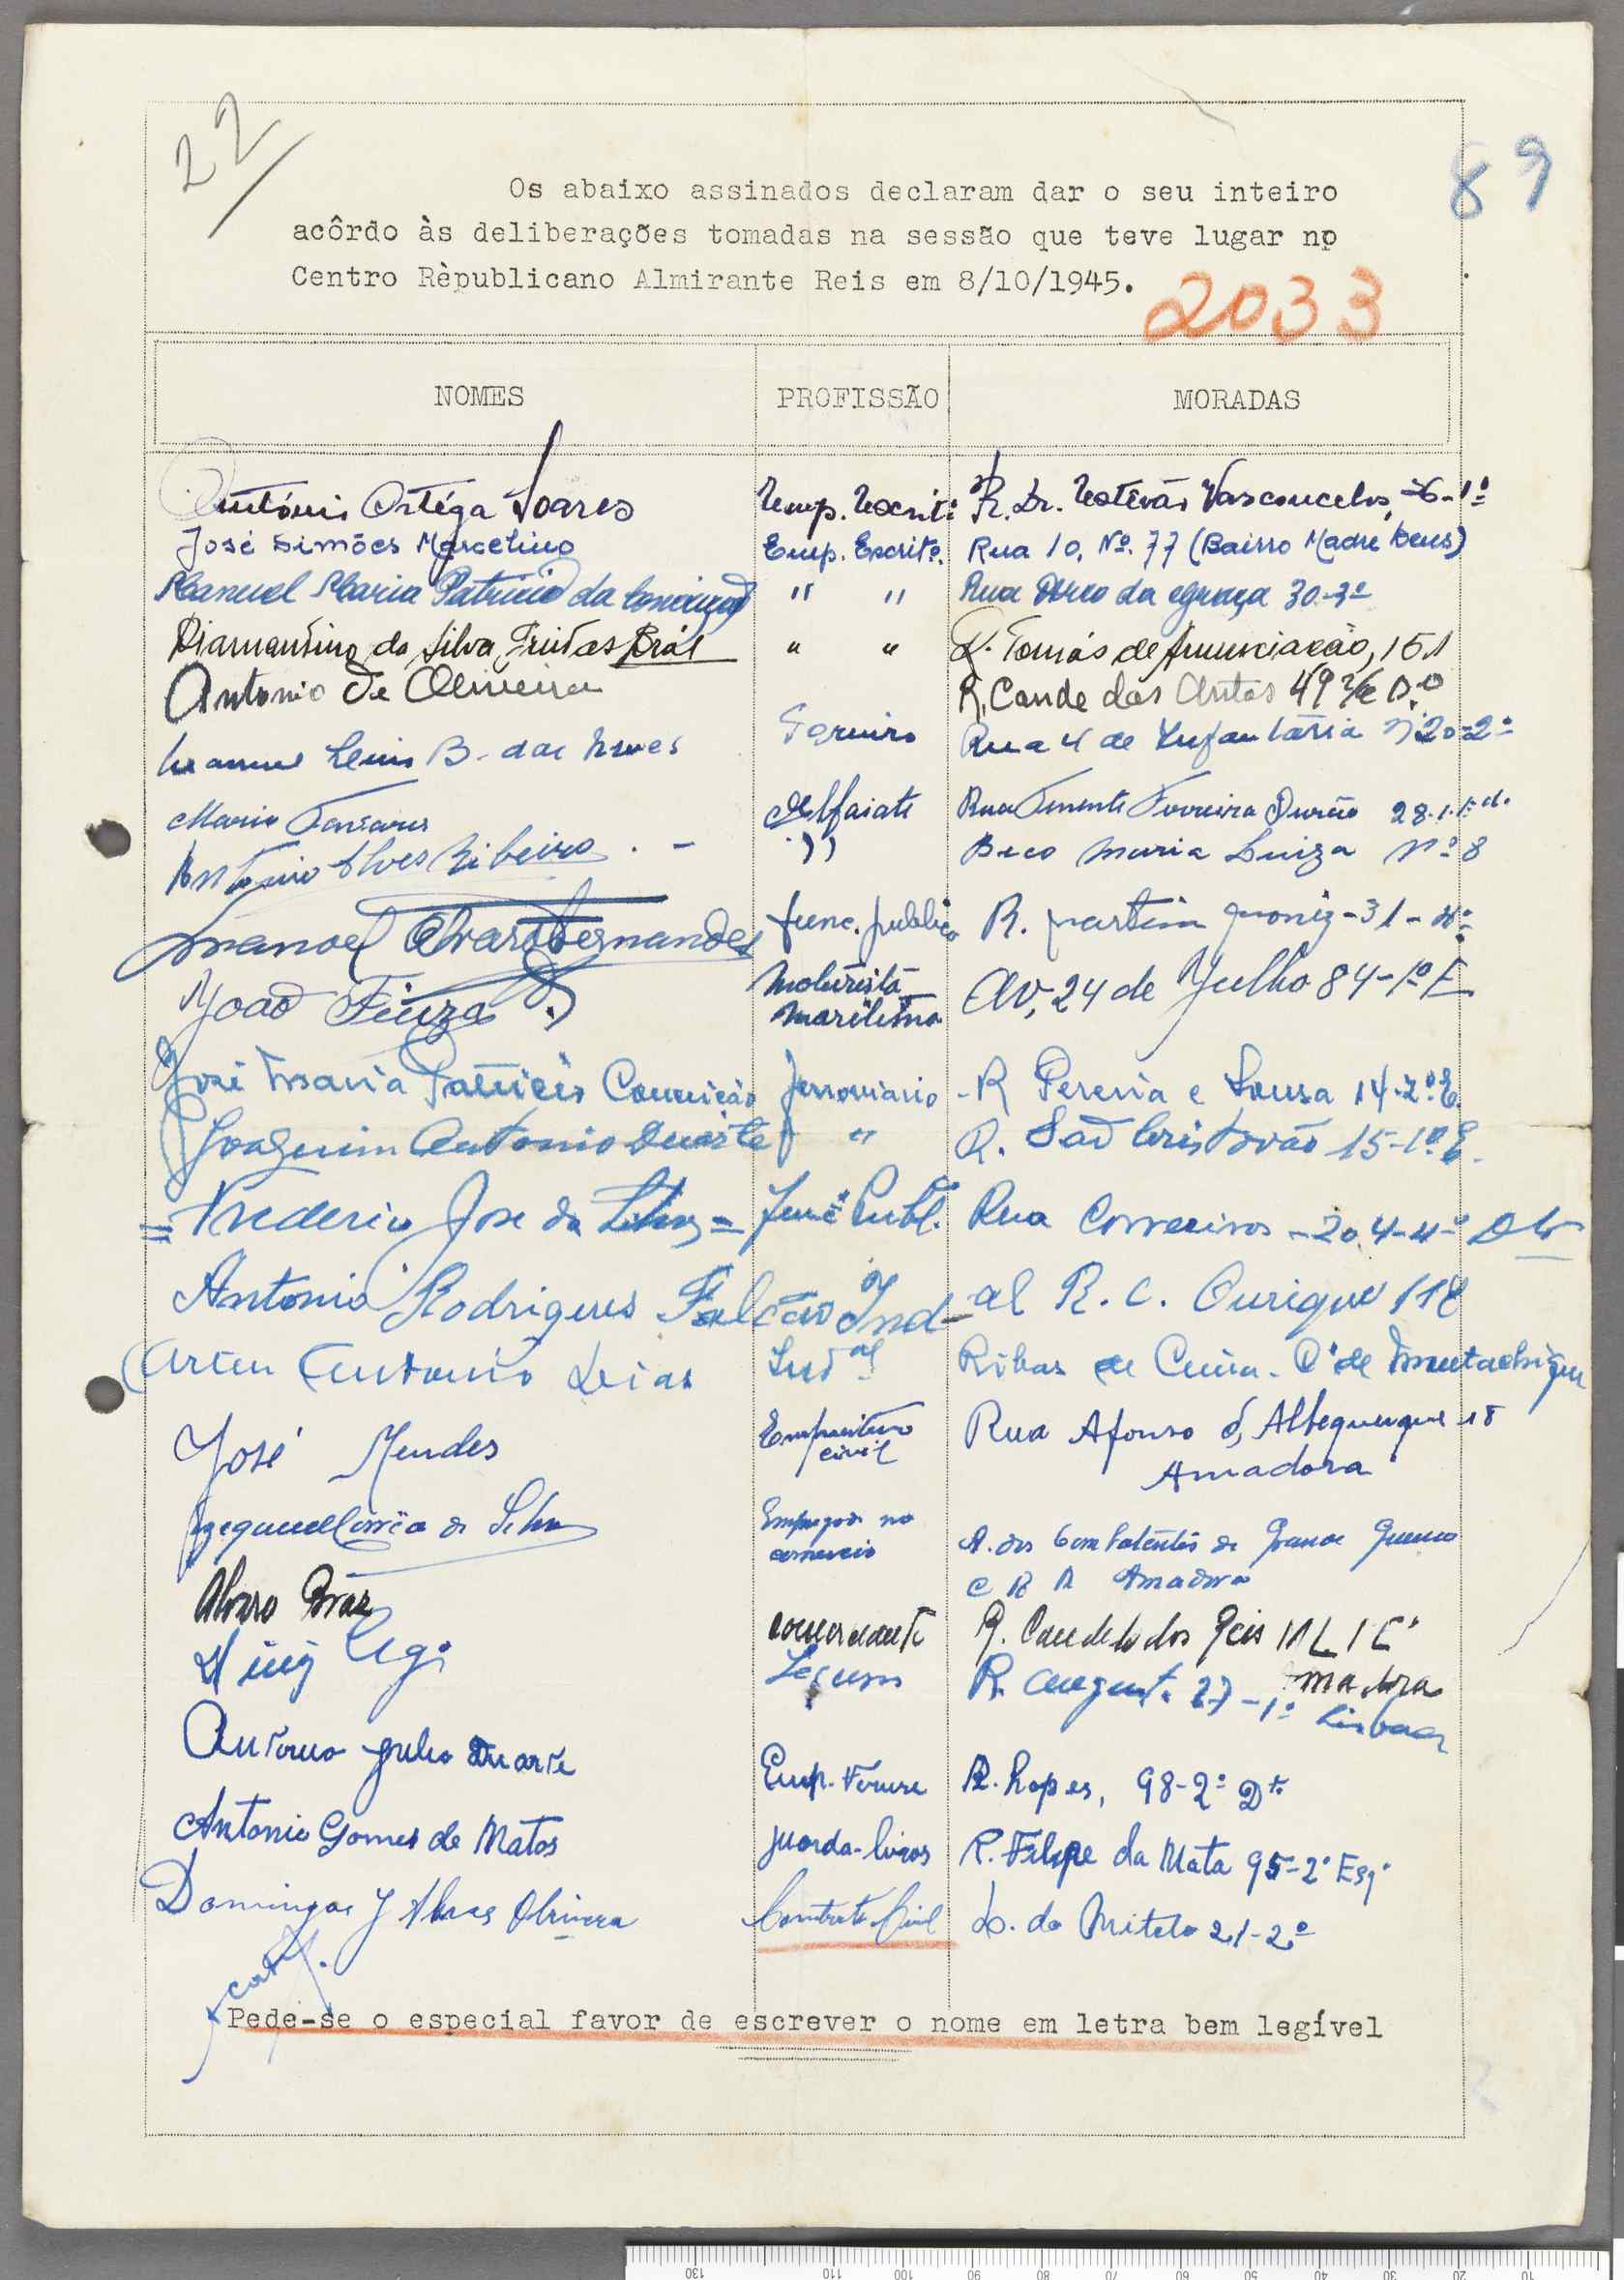 22
89
Os abaixo assinados declaram dar o seu inteiro
acôrdo às deliberações tomadas na sessão que teve lugar no
Centro Rèpublicano Almirante Reis em 8/10/1945.
2033
NOMES PROFISSÃO MORADAS
António Ortéga Soares Emp. Escrit. R. Dr. Estêvão Vasconcelos, 1º
José Simões Marcelino Emp. Escritº. Rua 10, Nº. 77 (Bairro Madre Deus)
Manuel Maria Patricio da Conceição " " Rua Arco da Graça 30-3º
Diamantino da Silva Freitas Brás " " R. Tomás de Anunciação, 151
Antonio de Oliveira R. Conde das Antas 49
Manuel B. das Neves Torneiro Rua 4 de Infantária 20-2º
Mario Tavares Alfaiate Rua Tenente Ferreira Durão 28.1.
Antonio Alves Ribeiro . - " Beco Maria Luiza Nº 8
Manoel Fernandes func. publico R. Martim Moniz-31-4º
João Fiuza Motorista Maritimo Av, 24 de Julho 84-1º E
José Maria Patricio Conceição ferroviario -R Pereira e Sousa 14-2º E.
Joaquim Antonio Duarte " R. São Cristovão 15-1º E.
= Frederico José da Silva = Func Publ. Rua Correeiros -204-4º Dto
Antonio Rodrigues Falcão Ind-al R. C. Ourique 118
Antonio Dias Indal Ribas de Cima.
José Mendes Empreiteiro civil Rua Afonso d, Albequerque 18
Amadora
Ezequiel Corrêa da Silva Empregado no comercio A. dos Combatentes da Grande Guerra
C R A Amadora
Alvaro Braz comerciante R. Candido dos Reis
Amadora
R. Augusta 27-1º Lisboa
Antonio Julio Duarte Emp. R. Lopes, 98-2º Dto
Antonio Gomes de Matos guarda-livros R. Filipe da Mata 95-2º Esqº
Domingos J Alves Oliveira Construtor Civil L. do Mitelo 21-2º
Pede-se o especial favor de escrever o nome em letra bem legível